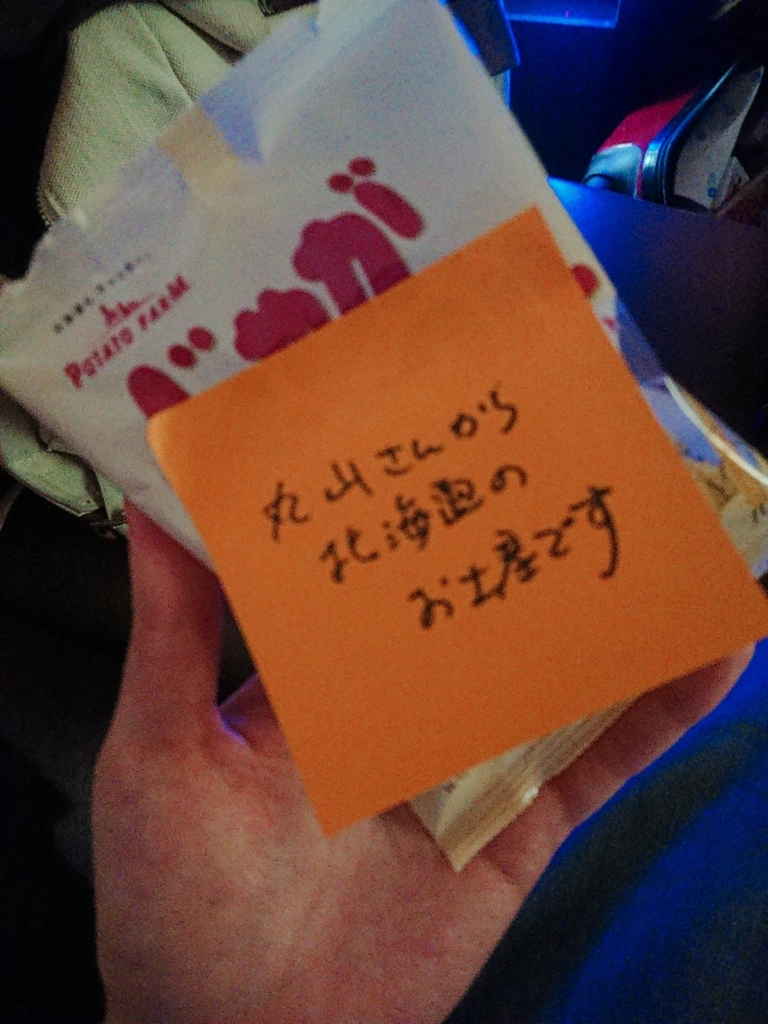 POTATO FARM
じゃが
丸山さんから
北海道の
お土産です